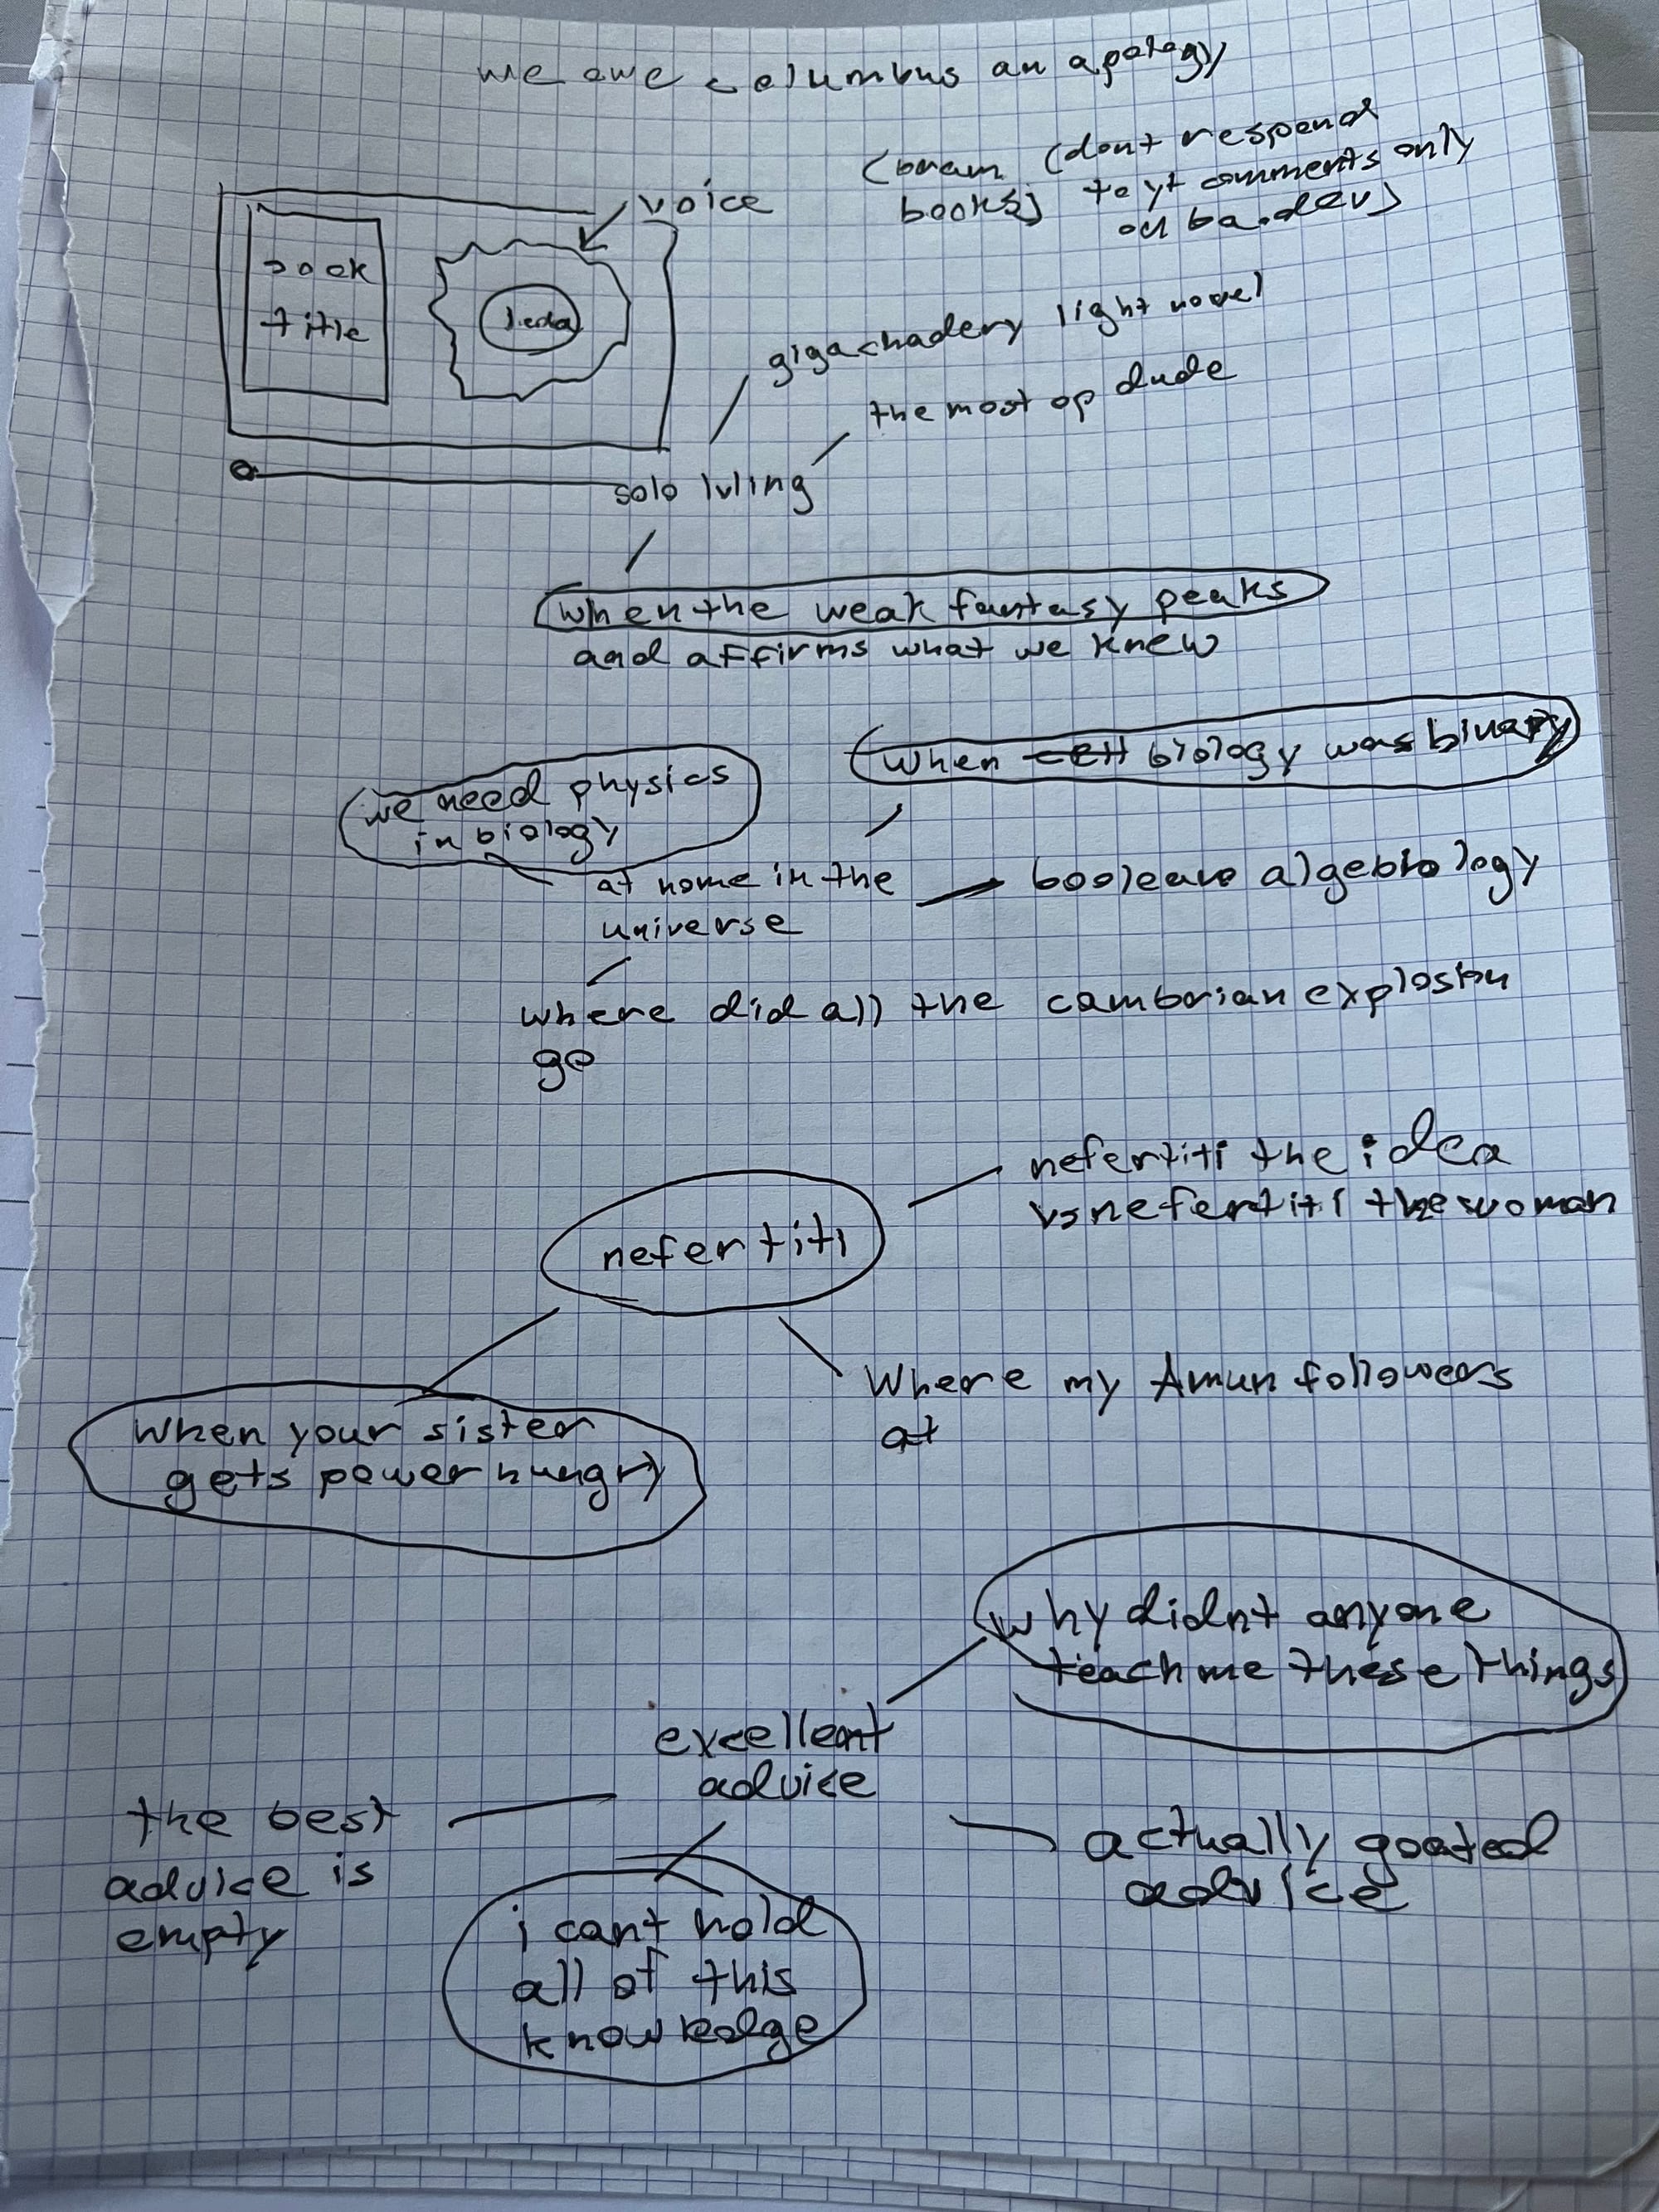 we owe columbus an apology
(bram (dont respond
books) to yt comments only
on ba.dev)
voice
book
title
gigachadery light novel
the most op dude
solo lvling
when the weak fantasy peaks
and affirms what we knew
when cell biology was binary
we need physics
in biology
at home in the
universe
boolean algebiology
where did all the cambrian explosion
go
nefertiti the idea
vs nefertiti the woman
nefertiti
Where my Amun followers
at
when your sister
gets power hungry
why didnt anyone
teach me these things
excellent
advice
the best
advice is
empty
actually goated
advice
i cant hold
all of this
knowledge